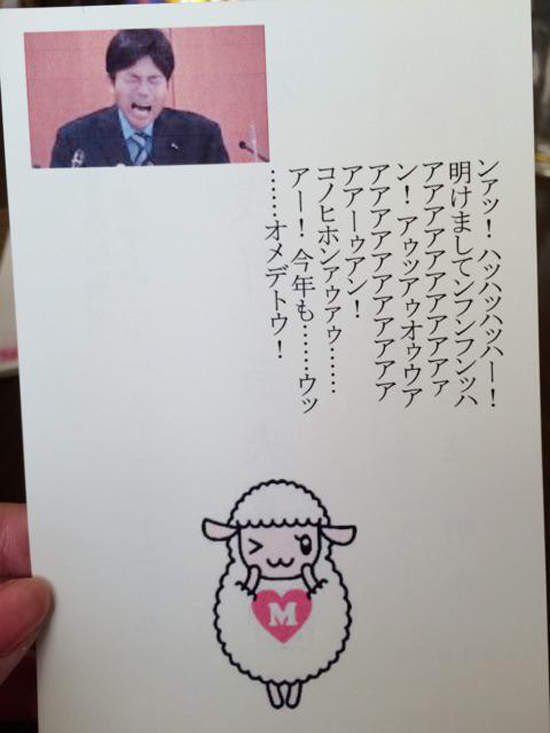 ンァッ！ハッハッハッハー！
明けましてンフンフンッハ
アアアアアアアアアアァ
ン！アゥッアゥオゥウア
アアアアアアアアアアア
アアーゥアン！
コノヒホンァゥァゥ……
アー！今年も……ウッ
……オメデトウ！
M